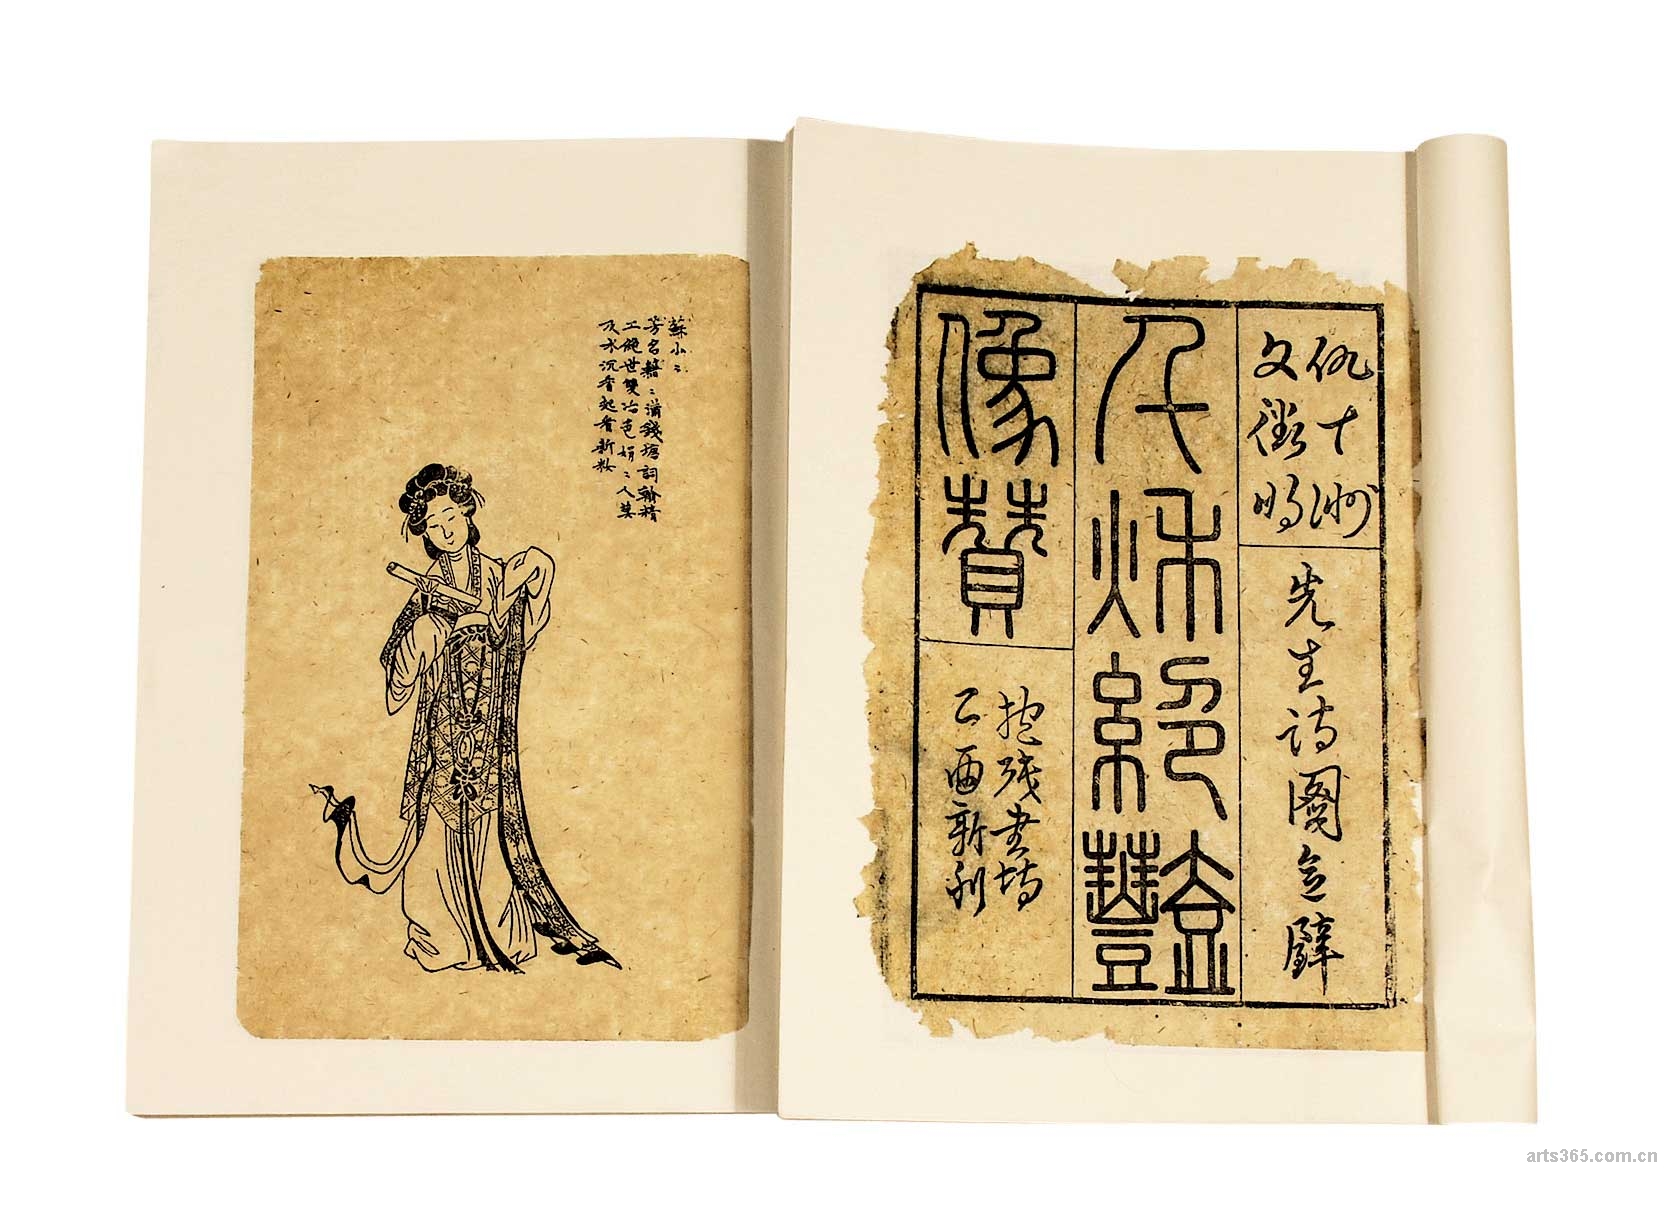 仇十洲
文徵明
先生詩圖合璧
千秋絕豔
像贊
抱殘書坊
乙酉新刊
蘇小〻
芳名籍〻滿錢塘詞翰精
工絕世雙冶色娟〻人莫
及水沉香起看新粧
arts365.com.cn